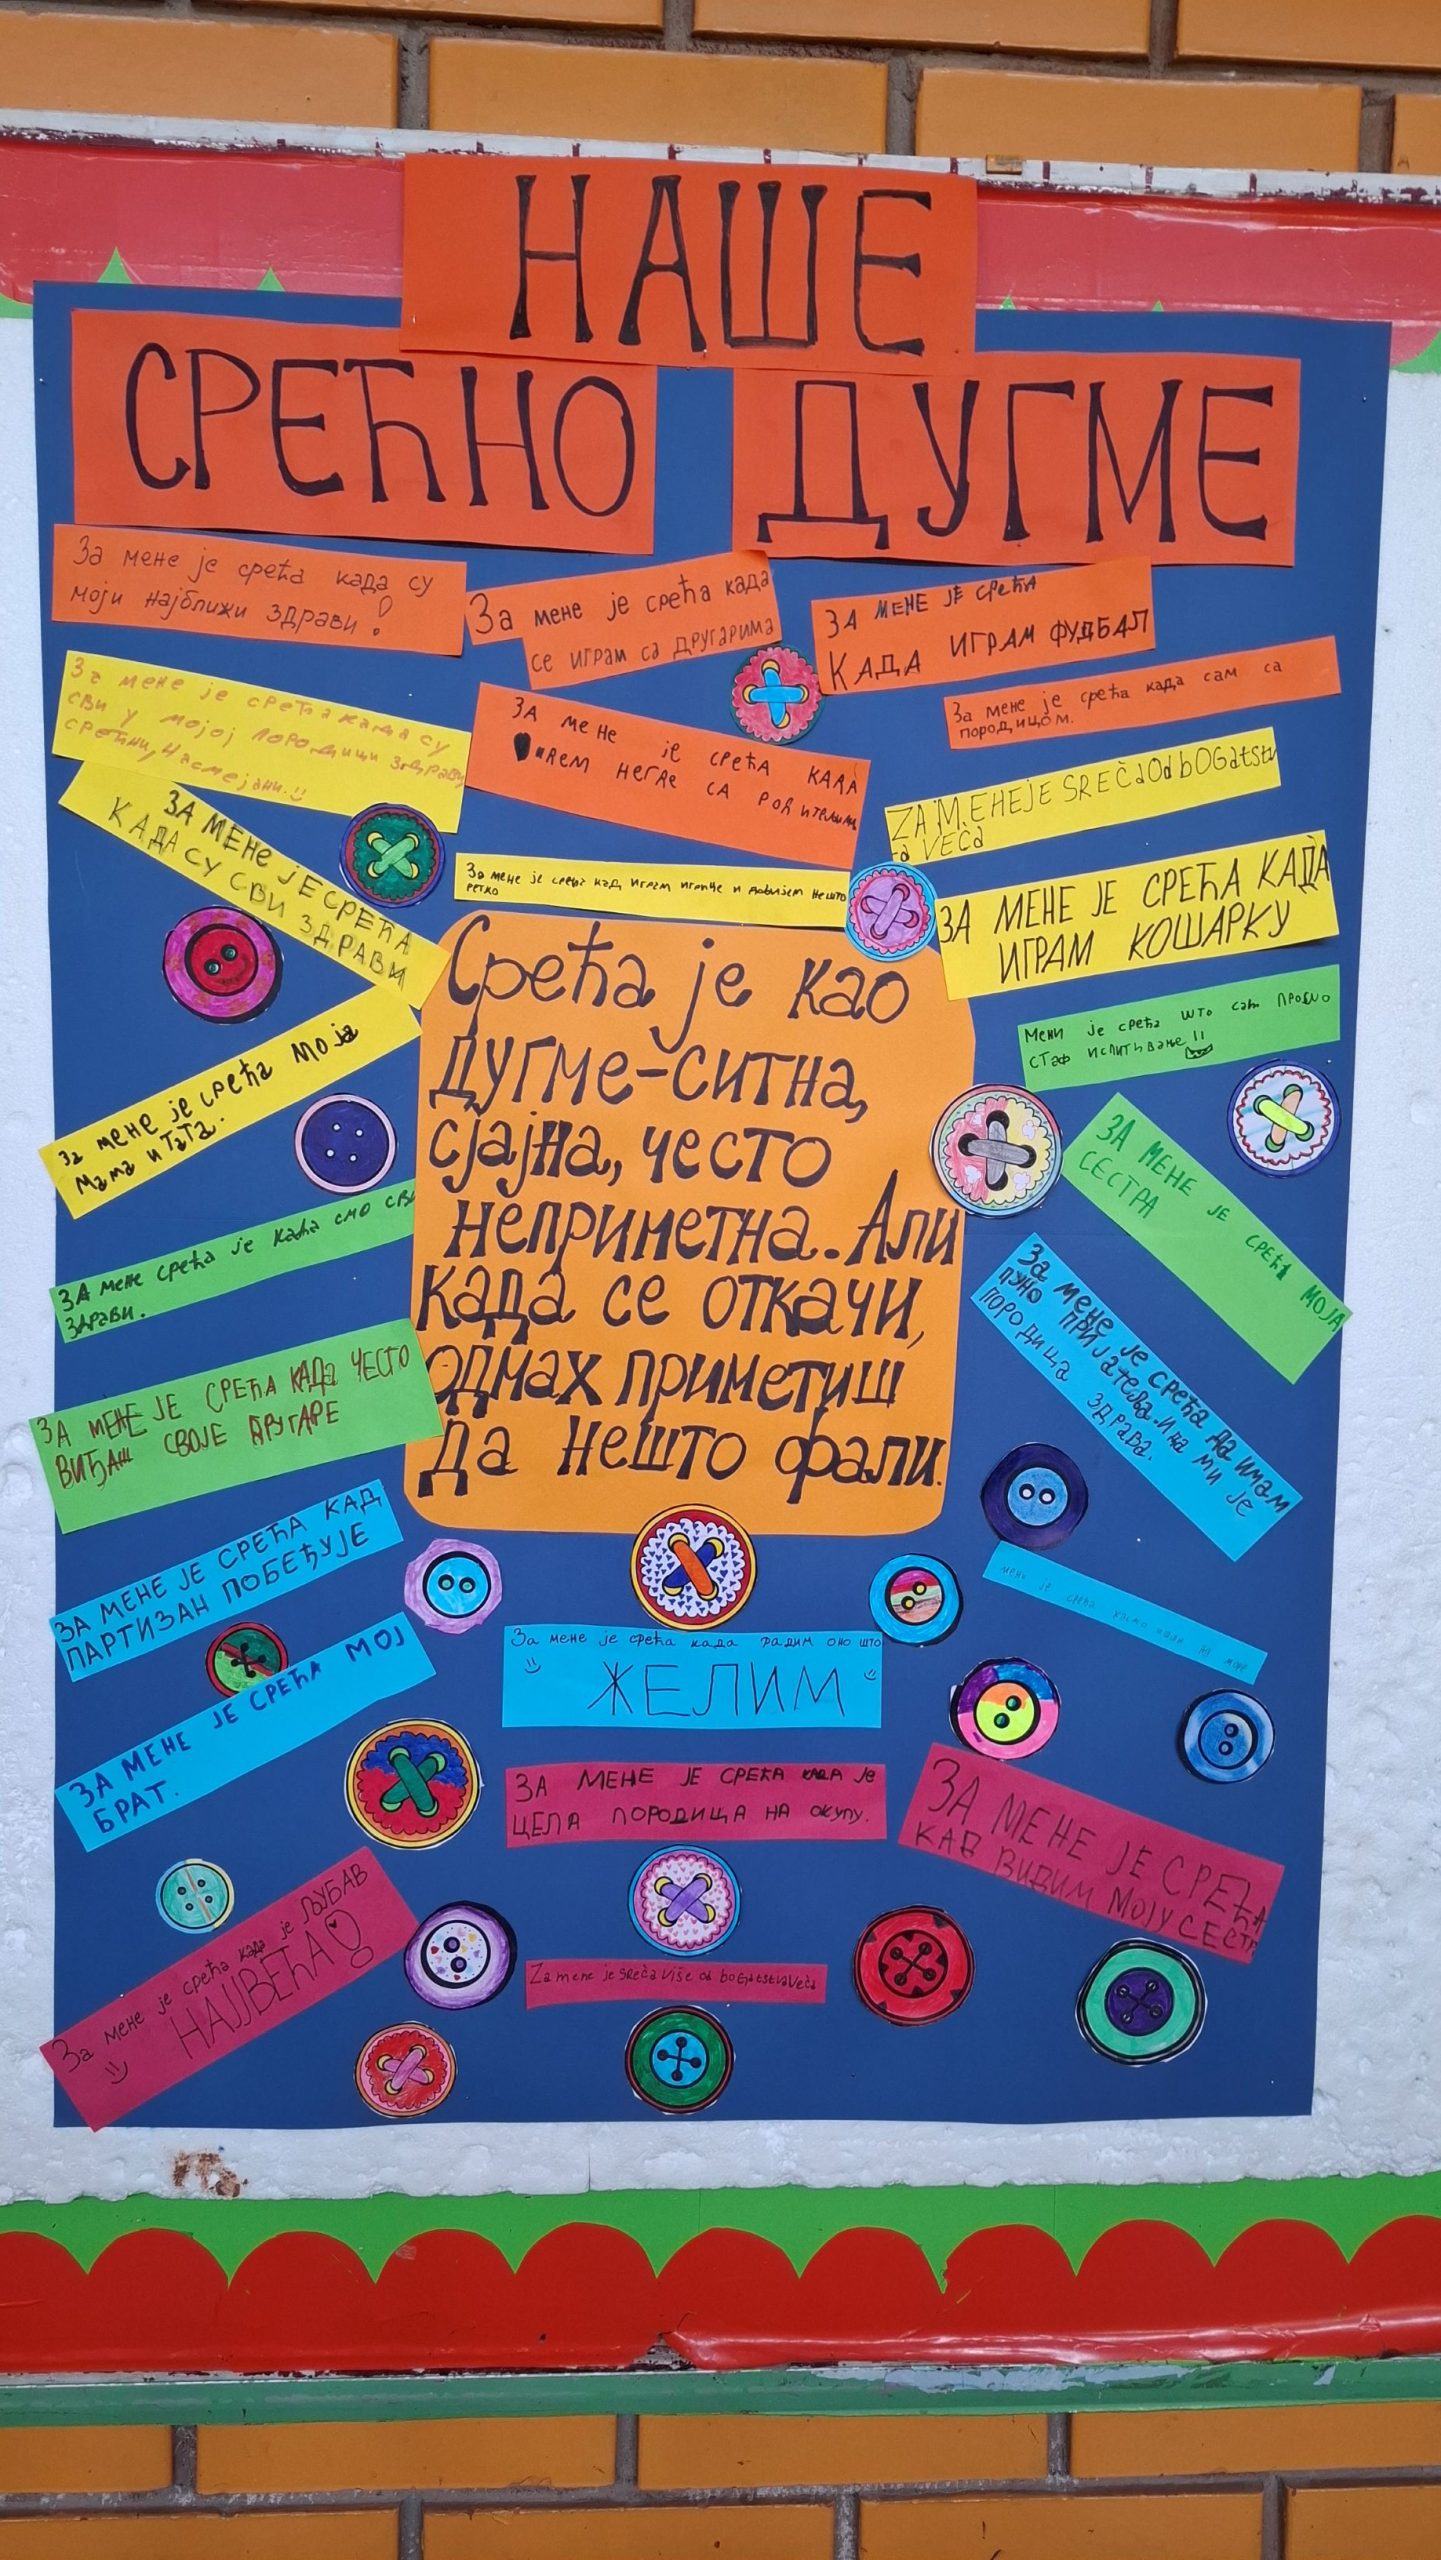 НАШЕ
СРЕЋНО ДУГМЕ
За мене је срећа када су
моји најближи здрави!
За мене је срећа када
се играм са другарима
ЗА МЕНЕ ЈЕ СРЕЋА
КАДА ИГРАМ ФУДБАЛ
За мене је срећа када сам са
породицом.
За мене је срећа када су
сви у мојој породици здрави
срећни, насмејани.
ЗА мене је срећа КАДА
негде са родитељима
ZA MENEJE SREČa Od bOGatstv
ra VEČa
ЗА МЕНЕ ЈЕ СРЕЋА
КАДА СУ СВИ ЗДРАВИ
За мене је срећа кад играм игрице и добијем нешто
ретко
ЗА МЕНЕ ЈЕ СРЕЋА КАДА
ИГРАМ КОШАРКУ
Срећа је као
дугме-ситна,
сјајна, често
неприметна. Али
када се откачи,
одмах приметиш
да нешто фали.
За мене је срећа моја
мама и тата.
Мени је срећа што сам
стаф испитивање!!
ЗА МЕНЕ ЈЕ СРЕЋА МОЈА
СЕСТРА
ЗА мене срећа је када смо сви
здрави.
За мене је срећа да имам
пуно пријатеља. и да ми је
породица здрава.
ЗА МЕНЕ ЈЕ СРЕЋА КАДА ЧЕСТО
ВИЂАШ СВОЈЕ ДРУГАРЕ
ЗА МЕНЕ ЈЕ СРЕЋА КАД
ПАРТИЗАН ПОБЕЂУЈЕ
мени је срећа на море
ЗА МЕНЕ ЈЕ СРЕЋА МОЈ
БРАТ.
За мене је срећа када радим оно што
ЖЕЛИМ
ЗА МЕНЕ ЈЕ СРЕЋА КАДА ЈЕ
ЦЕЛА ПОРОДИЦА НА ОКУПУ.
ЗА МЕНЕ ЈЕ СРЕЋА
КАД ВИДИМ МОЈУ СЕСТР
За мене је срећа када је ЉУБАВ
НАЈВЕЋА!
Za mene je sreča više od boGatstva veča